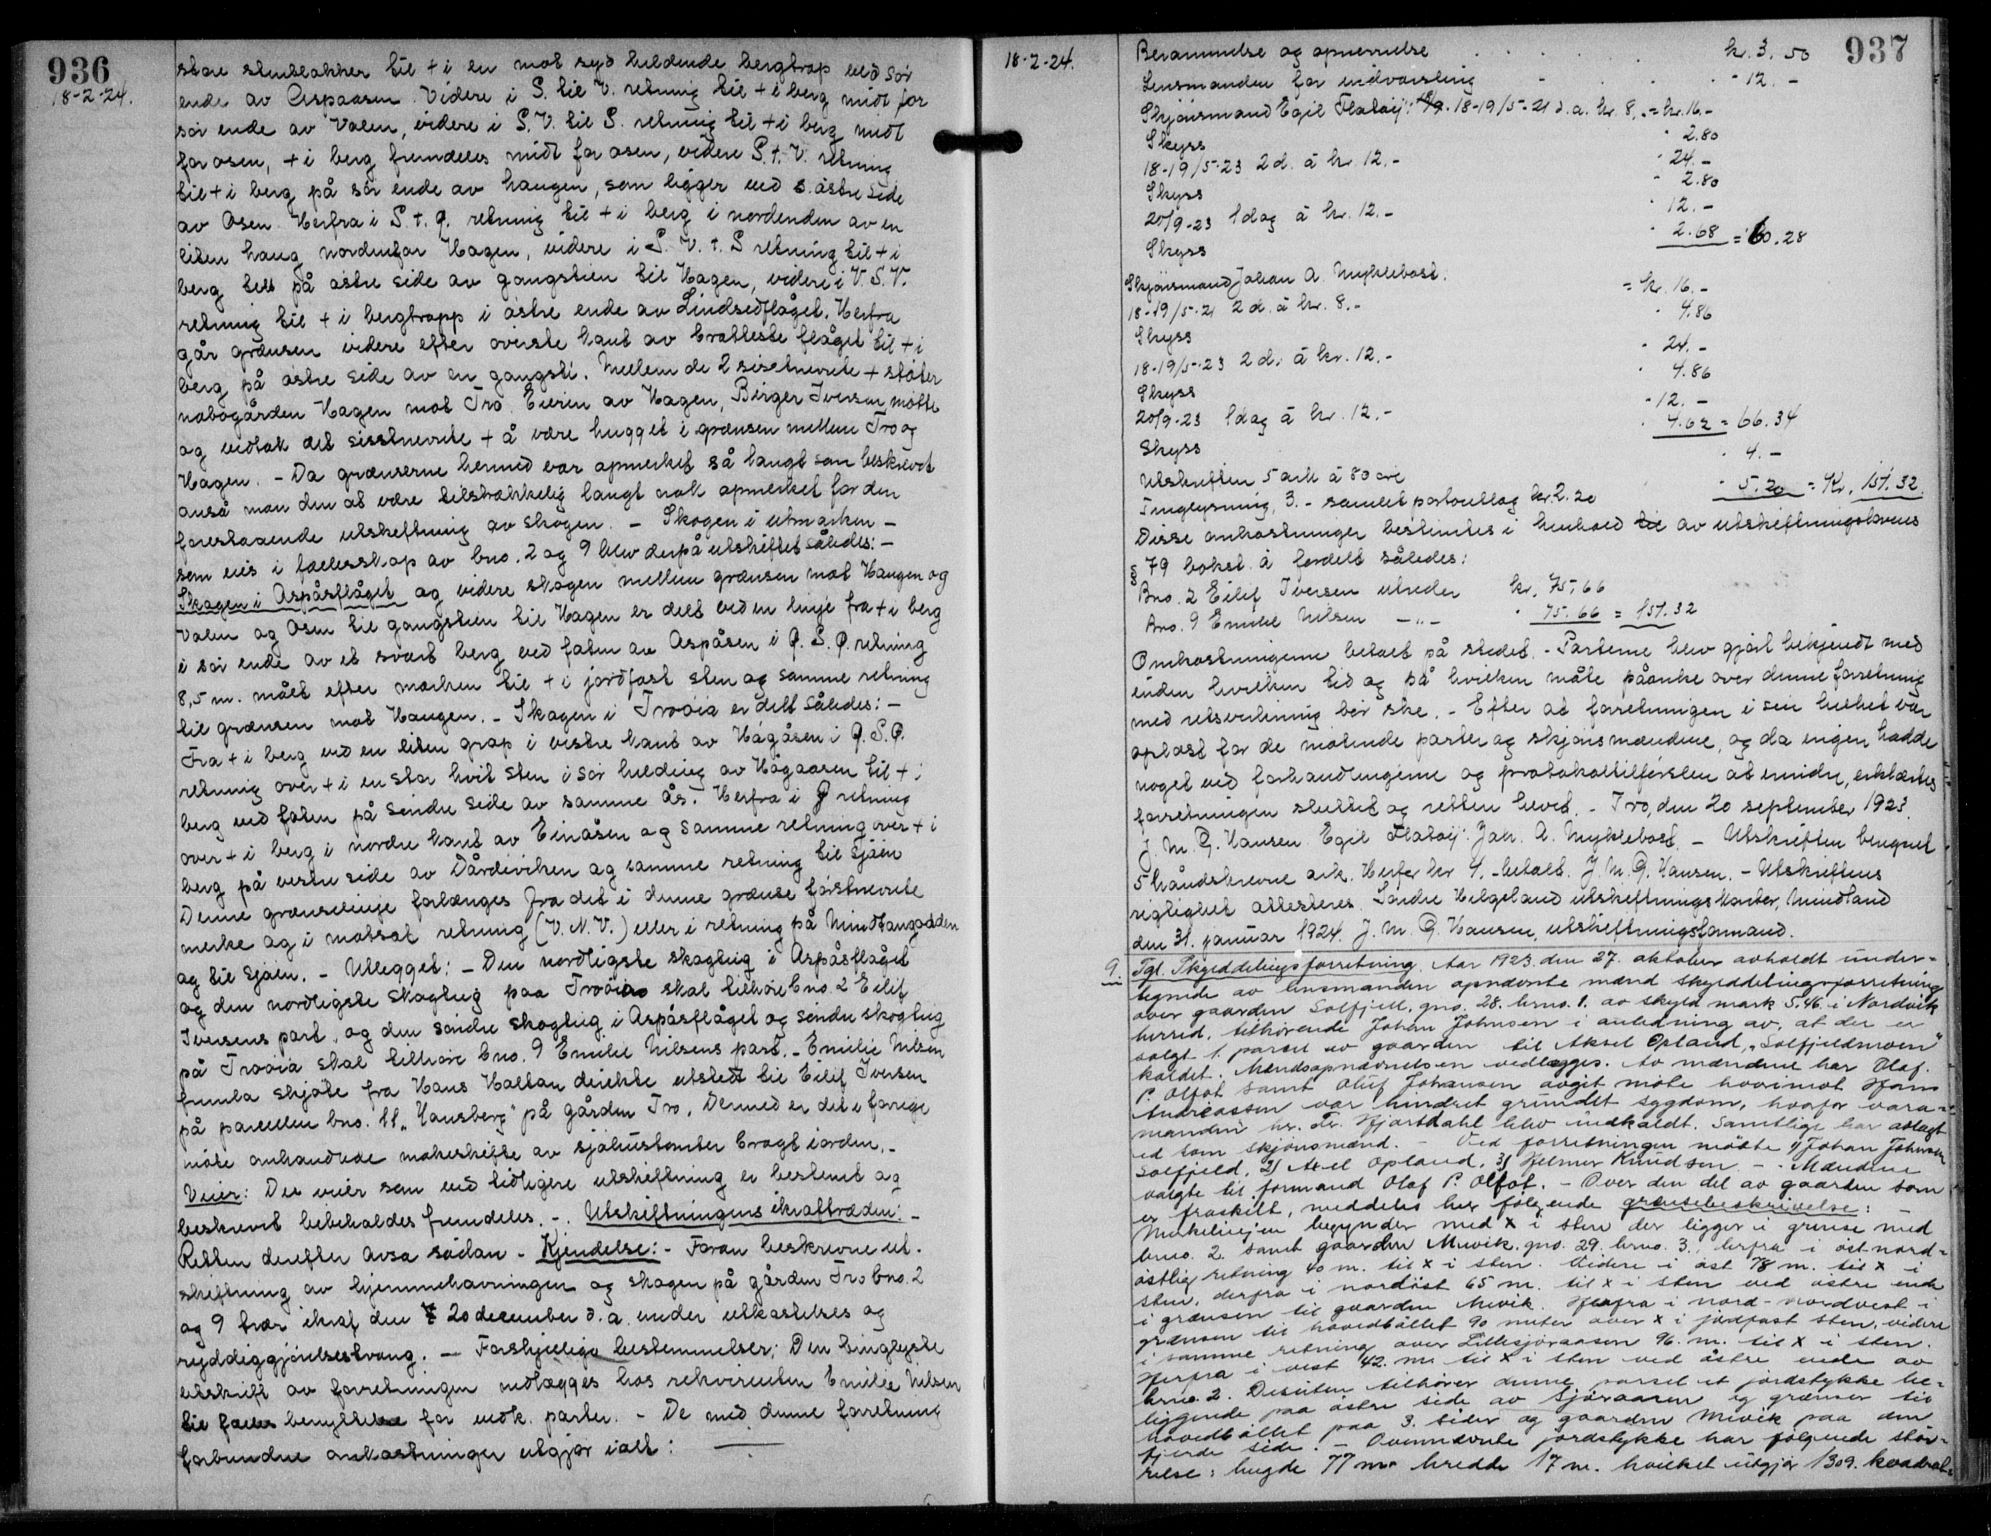 936
18-2-24.
store stenblokker til + i en mot syd heldende bergtrap ved sør
ende av Aspaasen. Videre i S. til V. retning til + i berg midt for
sør ende av Valen, videre i S.V. til S. retning til + i berg midt
for osen, + i berg fremdeles midt for osen, videre S.t.V. retning
til + i berg på sør ende av haugen, som ligger ved s. østre side
av Osen. Herfra i S.t.Ø. retning til + i berg i nordenden av en
liten haug nordenfor Hagen, videre i S.V.t.S retning til + i
berg tett på østre side av gangstien til Hagen, videre i V.S.V.
retning til + i bergtrapp i østre ende av Lindsedflåget. Herfra
går grænsen videre efter øverste kant av bratteste flåget til + i
berg på østre side av en gangsti. Mellem de 2 sistnevnte + støter
nabogården Hagen mot Tro. Eieren av Hagen, Birger Iversen møtte
og vedtok det sisstnevnte + å være hugget i grænsen mellem Tro og
Hagen. - Da grænserne hermed var opmerket så langt som beskrevet
anså man den at være tilstrækkelig langt nok opmerket for den
forestaaende utskiftning av skogen. - Skogen i utmarken -
som eies i fællesskap av bno. 2 og 9 blev derpå utskiftet således: -
Skogen i Aspåsflåget og videre skogen mellem grænsen mot Haugen og
Valen og Osen til gangstien til Hagen er delt ved en linje fra + i berg
i sør ende av et svart berg ved foten av Aspåsen i Ø.S.Ø. retning
8,5 m. målt efter marken til + i jordfast sten og samme retning
til grænsen mot Haugen. - Skogen i Troøia er delt således: -
Fra + i berg ved en liten grop i vestre kant av Hågåsen i Ø.S.Ø.
retning over + i en stor hvit sten i sør helding av Hågaasen til + i
berg ved foten på søndre side av samme ås. Herfra i Ø retning
over + i berg i nordre kant av Einåsen og samme retning over + i
berg på vestre side av Dårdeviken og samme retning til sjøen
Denne grænselinje forlænges fra det i denne grænse førstnevnte
merke og i motsat retning (V.N.V.) eller i retning på Mindtangodden
og til sjøen. - Utlegget: - Den nordligste skogteig i Aspåsflåget
og den nordligste skogteig paa Troøia skal tilhøre bno. 2 Eilif
Iversens part, og den søndre skogteig i Aspåsflåget og søndre skogteig
på Troøia skal tilhøre bno. 9 Emilie Nilsens part. - Emilie Nilsen
fremla skjøte fra Hans Haltau direkte utstedt til Eilif Iversen
på parcellen bno. 11 "Hansberg" på gården Tro. Dermed er det i forrige
møte omhandlede makeskifte av sjøhustomter bragt i orden. -
Veier: De veier som ved tidligere utskiftning er bestemt og
beskrevet bebeholdes fremdeles. -. Utskiftningens ikrafttræden: -
Retten derefter avsa sådan - Kjendelse: - Foran beskrevne ut-
skiftning av hjemmehavningen og skogen på gården Tro bno. 2
og 9 trær ikraf den 20 december d.a. under utkastelses og
ryddiggjørelsestvang. - Forskjellige bestemmelser: Den tinglyste
utskrift av forretningen nedlægges hos rekvirenten Emilie Nilsen
til felles benyttelse for vedk. parter. - De med denne forretning
forbundne omkostninger utgjør ialt:
18-2-24.
937
Berammelse og opnevnelse kr. 3.50
Lensmanden for indvarsling " 12.-
Skjønsmand Egil Flatøy: 18-19/5-21 2 d. a. kr. 8,- = kr. 16.-
Skyss " 2.80
18-19/5-23 2 d. á kr. 12.- " 24.-
Skyss " 2.80
20/9-23 1 dag á kr. 12.- " 12.-
Skyss " 2.68 = 60.28
Skjønsmand Johan A. Myklebost.
18-19/5-21 2 d. á kr. 8.- = kr. 16.-
Skyss " 4.86
18-19/5-23 2 d. á kr. 12.- " 24.-
Skyss " 4.86
20/9-23 1 dag á kr. 12.- " 12.-
Skyss " 4.62 = 66.34
Utskriften 5 ark á 80 øre " 4.-
Tinglysning, 3.- samlet portoutlæg kr. 2.20 " 5.20 = Kr. 151.32.
Disse omkostninger bestemtes i henhold til av utskiftningslovens
§ 79 bokst. å fordelt således:
Bno. 2 Eilif Iversen utreder kr. 75,66
Bno. 9 Emilie Nilsen -"- " 75.66 = 151.32
Omkostningerne betalt på stedet. - Parterne blev gjort bekjendt med
inden hvilken tid og på hvilken måte påanke over denne forretning
med retsvirkning bør ske. - Efter at forretningen i sin helhet var
oplæst for de møtende parter og skjønsmændene, og da ingen hadde
noget ved forhandlingerne og protokoltilførslen at erindre, erklærtes
forretningen sluttet og retten hevet. - Tro, den 20 september 1923.
J. M. G. Hansen. Egil Flatøy. Joh. A. Myklebost. - Utskriften beregnet
5 håndskrevne ark. Herfor kr 4.- betalt. J. M. G. Hansen. - Utskriftens
rigtighet attesteres. Søndre Helgeland utskiftningskontor, Mindland
den 31. januar 1924. J. M. G. Hansen, utskiftningsformand.
9. Tgl. Skylddelingsforretning. Aar 1923 den 27. oktober avholdt under-
tegnede av lensmanden opnævnte mænd skylddelingsforretning
over gaarden Solfjell, gno. 28. brno. 1. av skyld mark 5.46. i Nordvik
herred, tilhørende Johan Johnsen i anledning av, at der er
solgt 1. parsel av gaarden til Aksel Opland, "Solfjeldmoen"
kaldet. Mændsopnævnelsen vedlægges. Av mændene har Olaf.
P. Olfot samt Oluf Johansen avgit møte hvorimot Hans
Andreassen var hindret grundet sygdom, hvorfor vara-
manden hr. Fr. Hjortdahl blev indkaldt. Samtlige har avlagt
ed som skjønsmænd. - Ved forretningen møtte 1) Johan Johnsen
Solfjeld, 2) Aksel Opland, 3) Helmer Knudsen. - - Mændene
valgte til formand Olaf P. Olfot. - Over den del av gaarden som
er fraskilt, meddeles her følgende grænsebeskrivelse: -
Merkelinjen begynder med x i sten der ligger i grænse med
brno. 2 samt gaarden Mevik, gno. 29. brno. 3., herfra i øst-nord-
østlig retning 40 m. til x i sten. Videre i øst 78 m. til x i
sten, derfra i nordøst 65 m. til x i sten ved østre ende
i grænsen til gaarden Mevik. Herfra i nord-nordvest i
grænsen til hovedbøllet 90 meter over x i jordfast sten, videre
i samme retning over Litlesjøraasen 96. m. til x i sten.
Herfra i vest 42. m. til x i sten ved østre ende av
brno 2. Desuten tilhører denne parsel et jordstykke be-
liggende paa østre side av Sjøraasen og grænser til
hovedbøllet paa 3. sider og gaarden Mevik paa den
fjerde side. - Ovennævnte jordstykke har følgende stør-
relse: lengde 77 m. bredde 17 m. hvilket utgjør 1309. kvadrat-